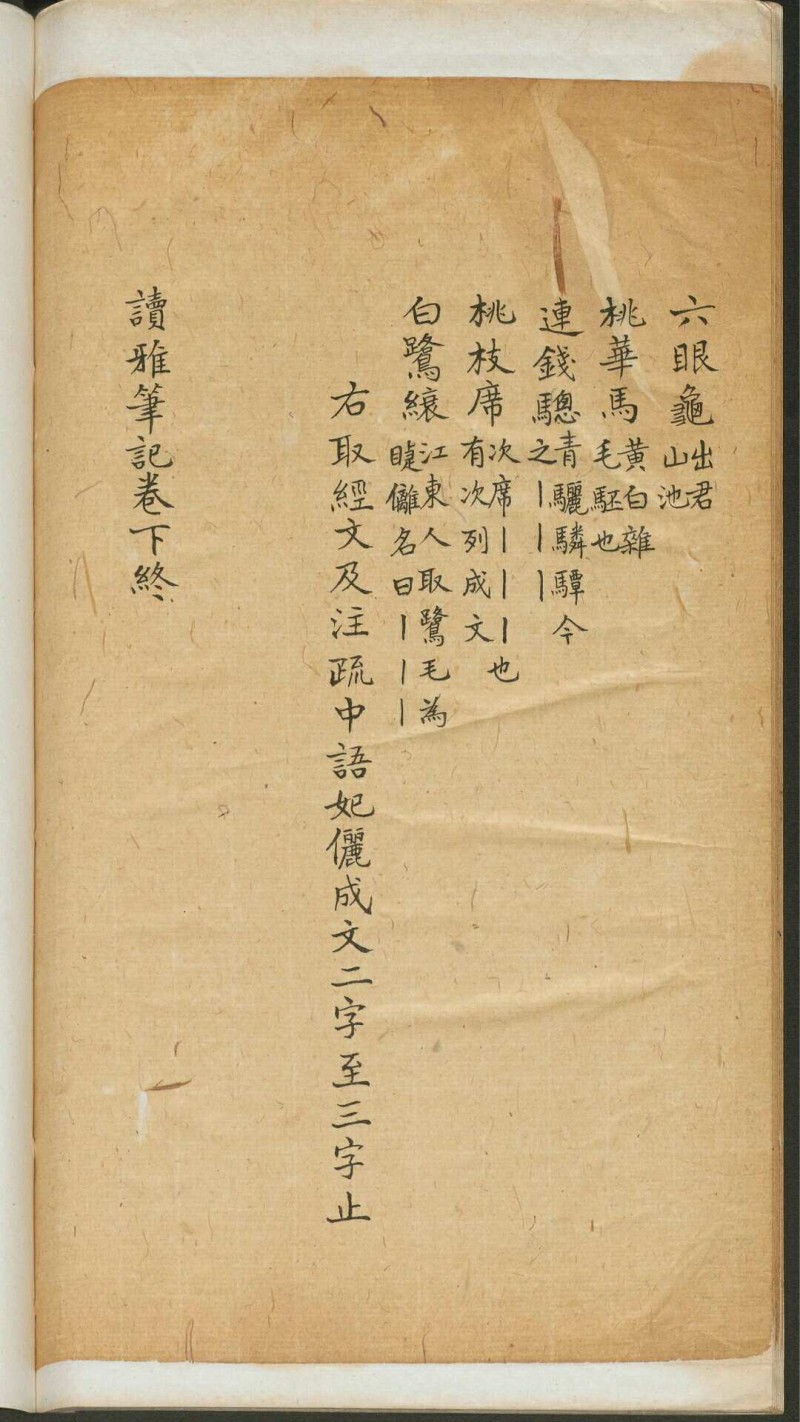 六眼龜出君山池
桃華馬黃白雜毛駓也
連錢驄青驪驎驒今之｜｜｜
桃枝席次席｜｜｜也有次列成文
白鷺縗江東人取鷺毛為睫䍦名曰｜｜｜
右取經文及注疏中語妃儷成文二字至三字止
讀雅筆記卷下終